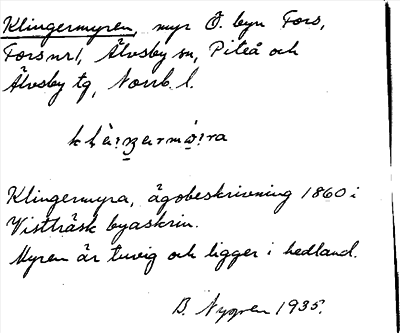 Klingermyren, myr Ö. byn Fors,
Fors nr 1, Älvsby sn, Piteå och
Älvsby tg, Norrb. l.
Klingermyra, ägobeskrivning 1860 i
Visträsk byaskrin.
Myren är tuvig och ligger i hedland.
B. Nygren 1935.